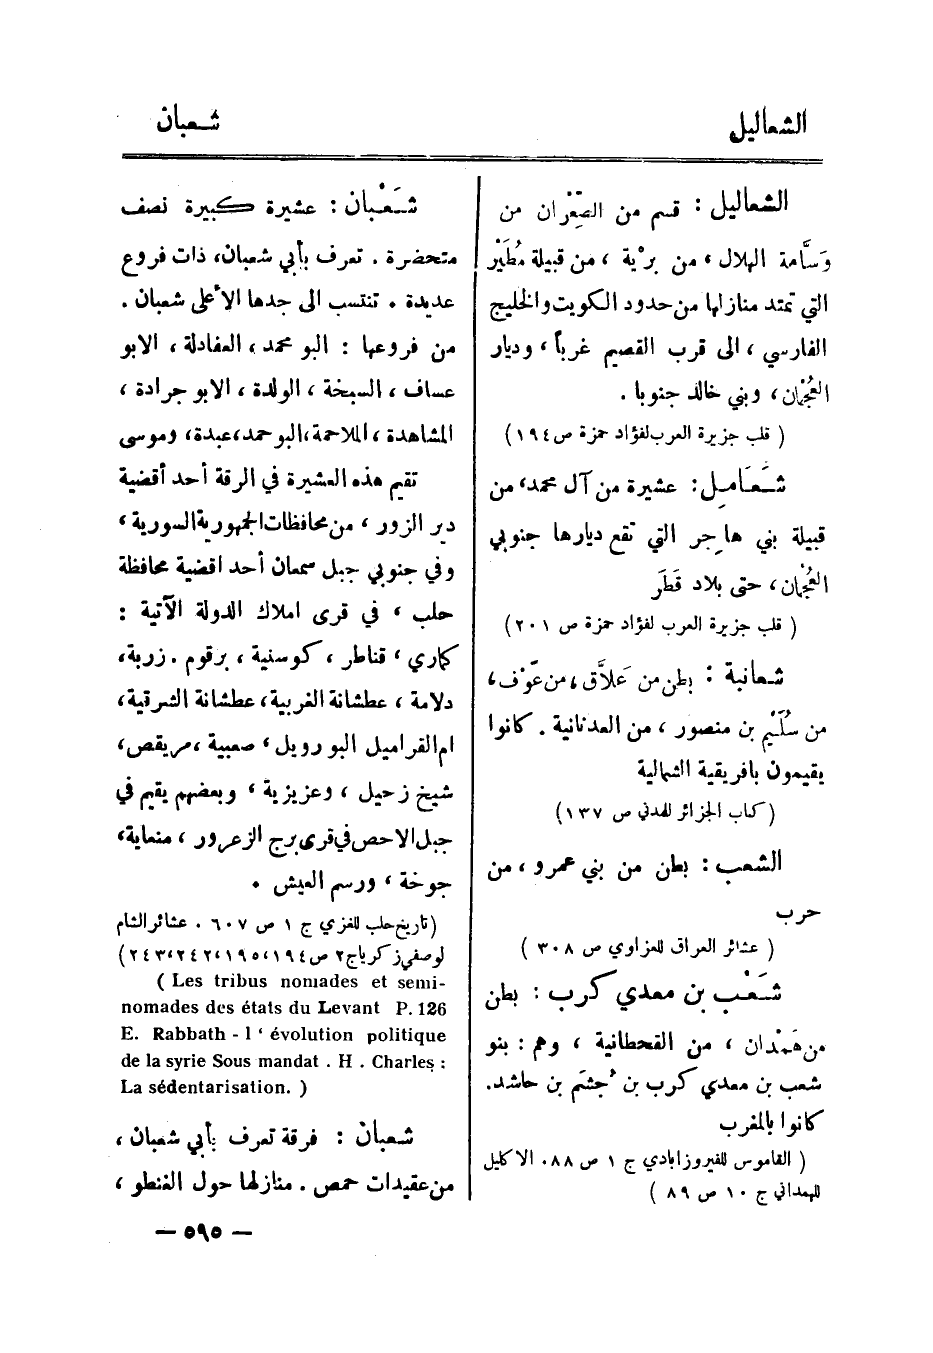 الشعاليل
شعبان
الشعاليل : قسم من الصِّعْران من
وَسَّامة الهلال ، من برْيَة ، من قبيلة مُطَيْر
التي تمتد منازلها من حدود الكويت والخليج
الفارسي ، الى قرب القصيم غرباً ، وديار
العُجْمَان ، وبني خالد جنوبا .
( قلب جزيرة العرب لفؤاد حمزة ص ١٩٤)
شَعَامِل : عشيرة من آل محمد ، من
قبيلة بني هاجِر التي تقع ديارها جنوبي
العُجْمَان ، حتى بلاد قَطَر
( قلب جزيرة العرب لفؤاد حمزة ص ٢٠١)
شعانبة : بطن من عَلاَّق ، من عَوْف ،
من سُلَيْم بن منصور ، من العدنانية . كانوا
يقيمون بافريقية الشمالية
(كتاب الجزائر للمدني ص ١٣٧)
الشعب : بطن من بني عمرو ، من
حرب
( عشائر العراق للعزاوي ص ٣٠٨ )
شَعْب بن معدي كرب : بطن
من هَمْدان ، من القحطانية ، وهم : بنو
شعب بن معدي كرب بن جُشَم بن حاشد.
كانوا بالمغرب
( القاموس للفيروزابادي ج ١ ص ٨٨. الاكليل
للهمداني ج ١٠ ص ٨٩ )
شَعْبان : عشيرة كبيرة نصف
متحضرة . تعرف بأبي شعبان، ذات فروع
عديدة . تنتسب الى جدها الأعلى شعبان .
من فروعها : البو محمد ، العفادلة ، الابو
عساف ، السبخة ، الولدة ، الابو جرادة ،
المشاهدة ، الملاحمة ، البو حمد ، عبدة ، وموسى
تقيم هذه العشيرة في الرقة أحد أقضية
دير الزور ، من محافظات الجمهورية السورية ،
وفي جنوبي جبل سمعان أحد اقضية محافظة
حلب ، في قرى املاك الدولة الآتية :
كماري ، قناطر ، كوسنية ، برقوم . زربة،
دلامة ، عطشانة الغربية ، عطشانة الشرقية ،
ام القراميل البو رويل ، صعبية ، مريقص،
شيخ زحيل ، وعزيزية ، وبعضهم يقيم في
جبل الاحص في قرى برج الزعرور ، منعاية،
جوخة ، ورسم العيش .
(تاريخ حلب للغزي ج ١ ص ٦٠٧ . عشائر الشام
لوصفي زكريا ج٢ ص ١٩٤، ١٩٥، ٢٤٢، ٢٤٣)
( Les tribus nomades et semi-
nomades des états du Levant P. 126
E. Rabbath - l ‘ évolution politique
de la syrie Sous mandat . H . Charles :
La sédentarisation. )
شعبان : فرقة تعرف بأبي شعبان ،
من عقيدات حمص . منازلها حول القنطو ،
— ٥٩٥ —